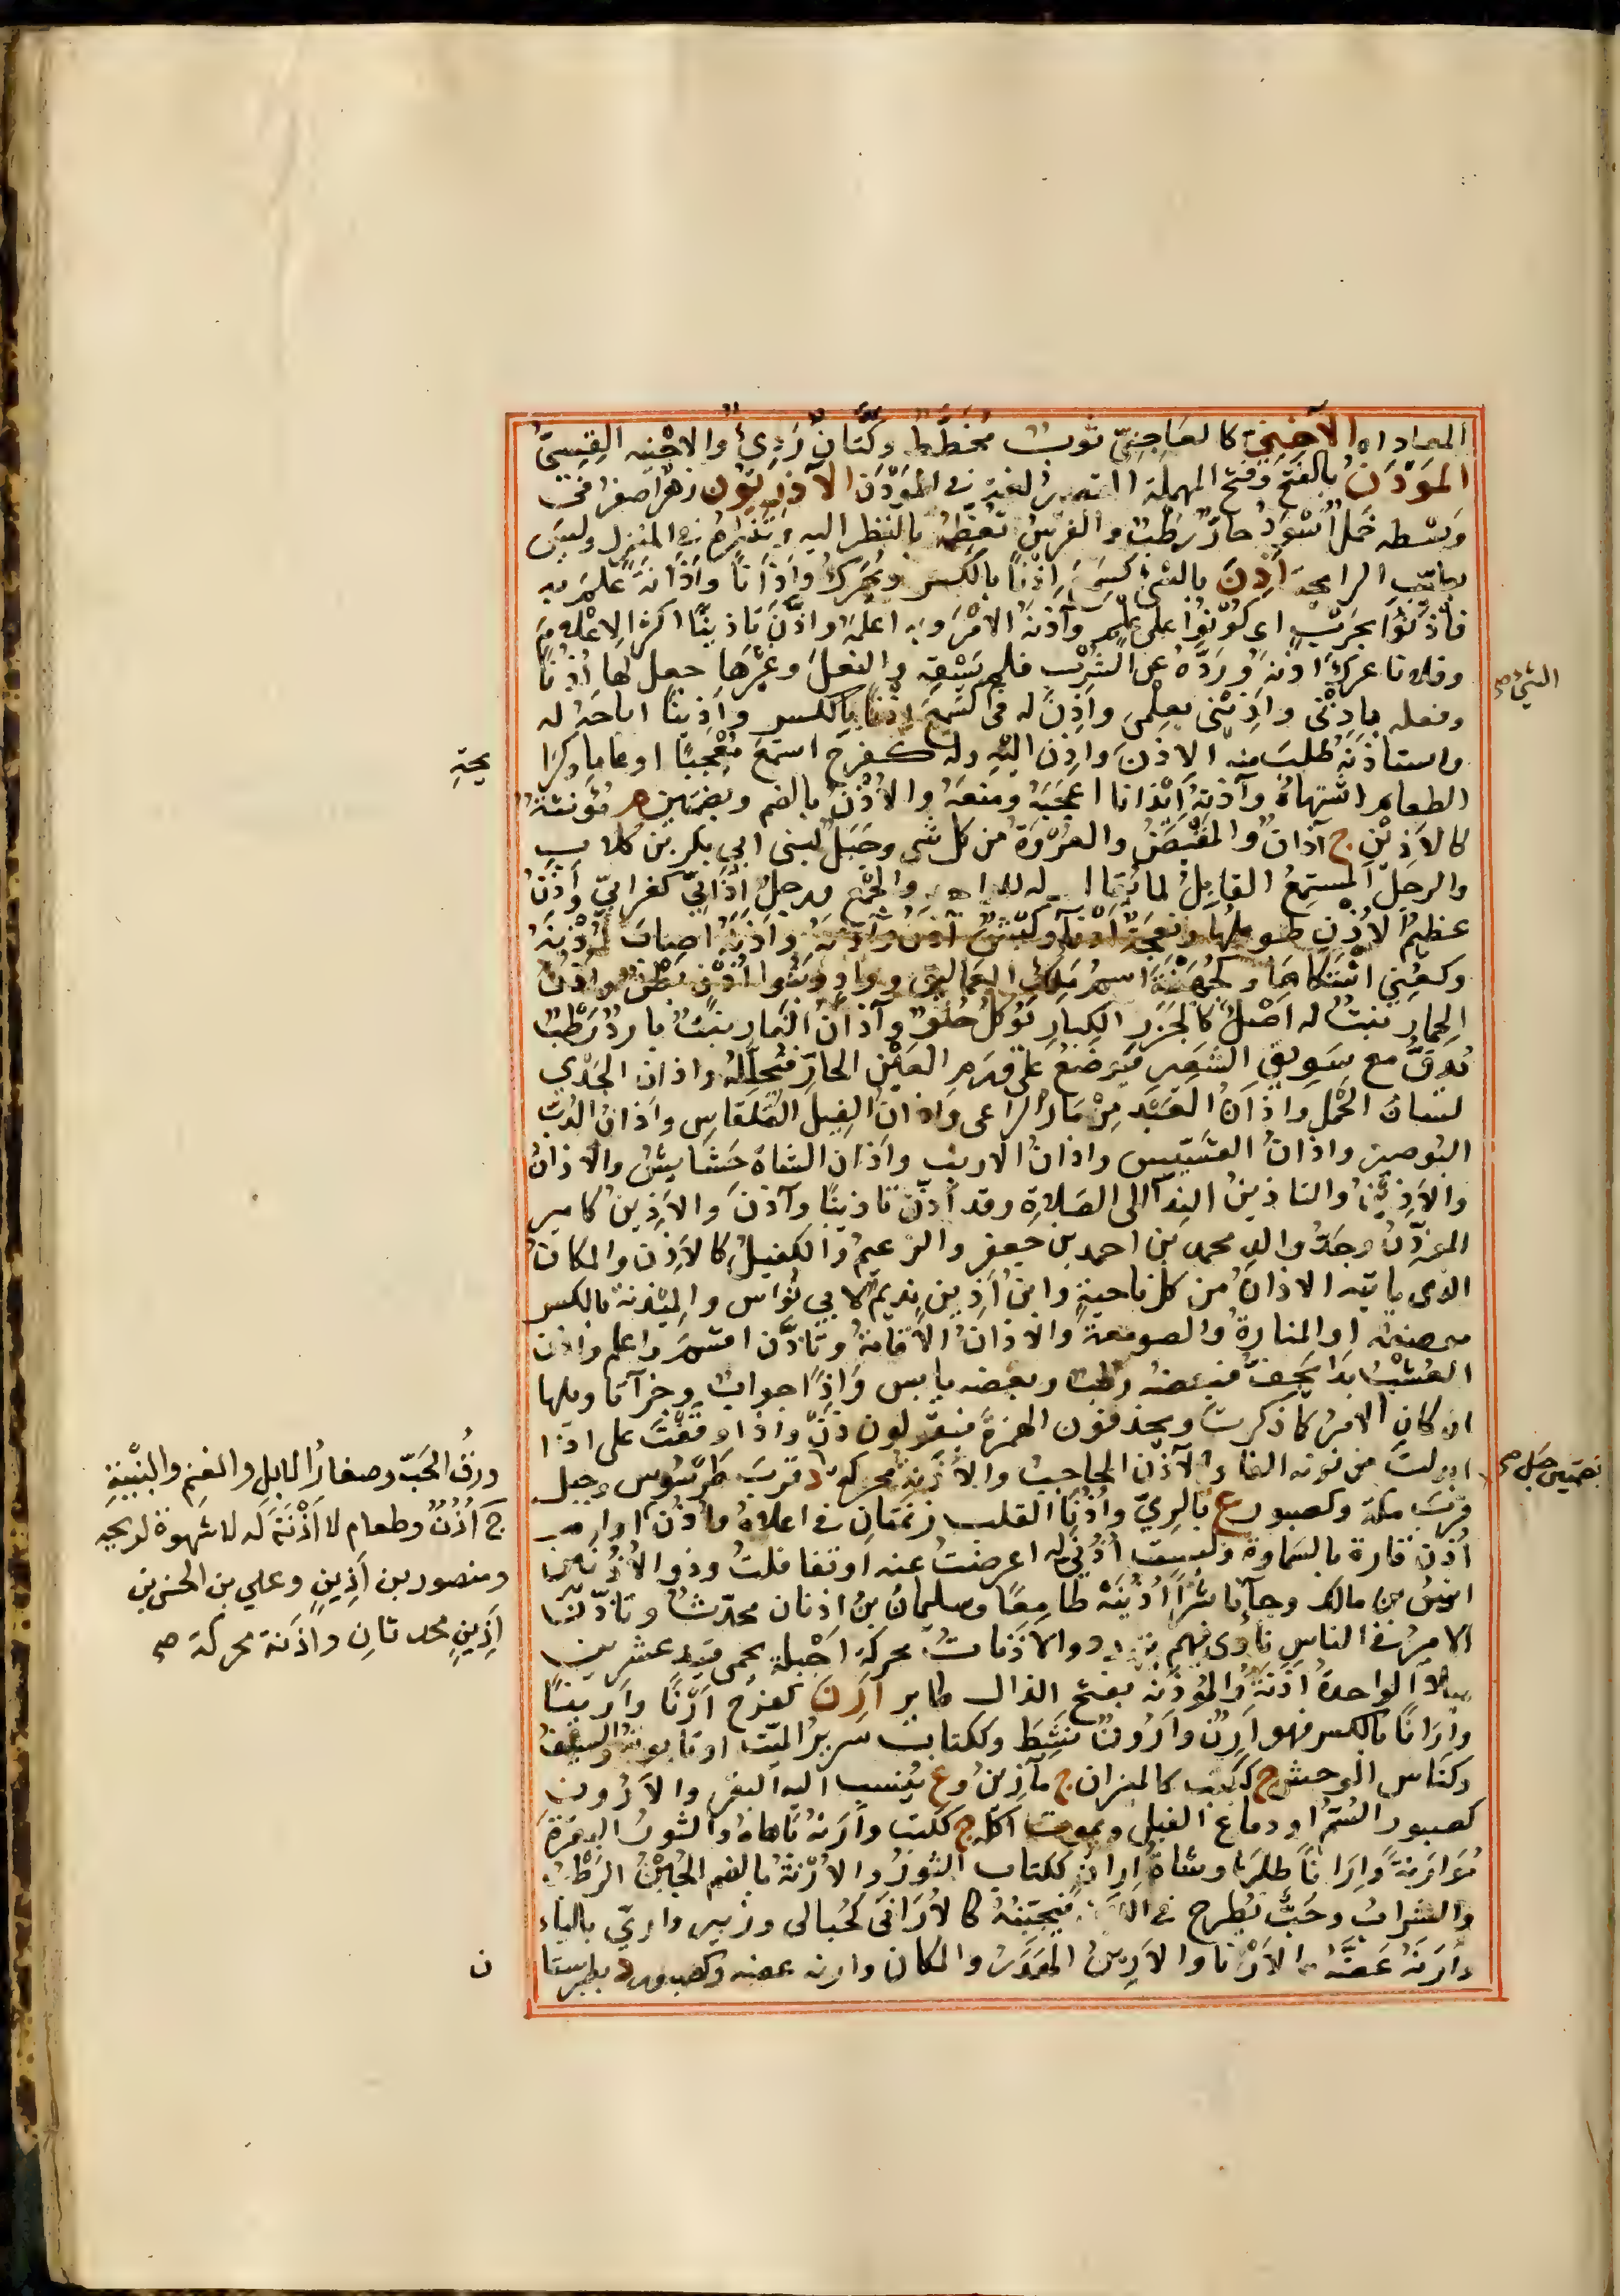 الآخِنيّ كالعَاجِنيّ ثوبٌ مُخَطَّطٌ وكَتَّانٌ رَدِئٌ والاخْنيه القِسِيّ
المُوَدَنُ بالفتح وفتح المهملة القصير لغة في المُوَدَن الآذَرِيُون زهرٌ اصفرُ في
وَسْطه خَمْلٌ اَسْوَدُ حارٌّ رَطْبٌ والفرسُ تُعَظِّمُهُ بالنظر اليه وتَنْثُرُهُ في المنزل وليسَ
بطيّب الرايحة اَذِنَ بالشئ كسَمِعَ اِذْنًا بالكسر ويُحرَّكُ واَذَانًا واَذَانَةً عَلِمَ به
فاْذَنُوا بحَرْبٍ اى كُونُوا على عِلْمٍ وآذَنَهُ الاَمْرَ وبه اعلمَهُ واَذَّنَ تاذينًا اكثر الاِعْلامَ
وفلانا عركَ اذنَهُ ورَدَّهُ عن الشُرْبِ فلم يَسْقِهِ والنعلَ وغيرَها جعل لها اُذُنًا
وفعله بِاِذْنى واَذِينى بعِلْمِى واَذِنَ له فى كسَمِعَ اِذْنًا بالكسر واَذِينًا اباحَهُ له
واستاذنَهُ طلبَ منه الاِذنَ واَذِنَ اليْهِ وله كفرحَ استمعَ مُعْجَبًا او عام ولِرَا
يحةِ
الطعام اشتهاهُ وآذنهُ اِيْذانا اعجبَهُ ومنعَهُ والاُذْنُ بالضم وبضمتين م مُؤنثةٌ
كالاَذِيْنِ ج آذانٌ والمَقْبِضُ والعُرْوَةُ من كل شئ وجَبَلٌ لبنى ابي بكر بن كلاب
والرجلُ المستمعُ القابِلُ لما يُقال له للواحد والجمع ورجلٌ اُذَانِيّ كغُرابيّ وآذَنُ
عظيمُ الاُذْنِ طويلها ونعجةٌ اَذْنآ وكبْشٌ آذَنُ واَذَنَهُ واَذَّنَهُ اصابَ اُذْنَهُ
وكعُنِي اشتكاها وكجُهَيْنَةَ اسمُ مَلِكِ العَمالِيقِ ووادٍ وبنُوا اُذُنٍ بَطْنٌ واُذُنُ
الحِمار نبتٌ له اصْلٌ كالجَزَرِ الكِبارِ يُوكلُ حُلوٌ وآذانُ الفار نبتٌ باردٌ رَطْبٌ
يُدقُّ مع سَوِيقِ الشَعيرِ فيوضَعُ على وَرَمِ العَيْن الحارّ فيُحلِّلهُ واذان الجَدْي
لسانُ الحَمَل واذانُ العَبْدِ مِزْمَارُ الراعى واذانُ الفِيلِ القُلقاس واذانُ الدُبّ
البُوصير واذانُ القسّيس واذانُ الارنب واذان الشاة حَشايشُ والاذانُ
والاَذِيْنُ والتاذينُ النِدآ الى الصَلاةِ وقد اَذَّنَ تاذينًا وآذَنَ والاَذِينُ كامير
المؤذّنُ وجَدُّ والدِ محمد بن احمد بن جعفر والزعيمُ والكفيلُ كالآذِن والمكانُ
الذى ياتيه الاذانُ من كل ناحيةٍ وابنُ اَذِينٍ نديمٌ لابي نُوَاس والمِئْذنةُ بالكسر
موضعه او المنارةُ والصومعة والاذانُ الاقامةُ وتاَذَّنَ اقسَمَ واعلم واَذّنَ
العُشْبُ بَدَا يَجِفُّ فبعضه رطبٌ وبعضه يابس واِذًا جوابٌ وجزآ تاويلها
ان كان الامرُ كما ذكرتَ ويحذفون الهمزةَ فيقولون ذَنْ واذا وقفتَ على اِذًا
ابدلتَ من نونه الفا والآذِن الحاجبُ والاَذَنَةُ محركةً د قربَ طَرَسُوس وجبل
قربَ مكة وكصبور ع بالرِيّ واُذُنَا القلب زنمتانِ في اعلاهُ واُذُن او ام
اُذُنٍ قارة بالسَماوة ولبستُ اُذُنِي له اعرضتُ عنه او تغافلتُ وذو الاُذُنَيْن
انسُ بن مالك وجآ ناشِرًا اُذُنَيْهِ طامِعًا وسليمانُ بنُ اذنان محدّثٌ وتاذَّنَ
الاميرُ في الناس نادَى فيهم بتهدد والاذَناتُ محركةً اَجْبُلٌ بحمى فيد عشرين
ميلا الواحدةُ اَذَنَةٌ والمُؤْذَنة بفتح الذال طاير اَرِنَ كفرحَ اَرَنًا واَرِينًا
واِرَانًا بالكسر فهو اَرِنٌ واَرُونٌ نَشِطَ وككتاب سَريرُ الميّت او تابوتُهُ والسيفُ
وكناس الوحش ج ككتب كالميران ج مآرينُ وع يُنسب اليه البقر والاَرُون
كصبور السُمّ او دماغ الفيل ويموت آكله ج ككتب وآرَنَهُ باهاهُ والثورُ البقرةَ
مُؤارنةً واِرَانًا طلبَها وشاةُ اِرانٍ ككتاب الثورُ والاُرْنةُ بالضم الجُبْنُ الرَطْبُ
والسَرابُ وحَبٌّ يُطرح في اللبن فيجبّنُهُ كالاُرَانى كحُبالى وزبير واربي بالباء
واَرَنَهُ عَضَّهُ والاَرِينُ المكان وارنه عضه وكصبور د بطبرستا
ن
الشئ صح
بضمتين جبل صح
ورقُ الحَبّ وصغارُ الابل والغنم والتبْنةِ
ج اُذُنٌ وطعام لا اَذَنَةَ له لا شهوةَ لريحه
ومنصور بن اَذِينٍ وعلي بن الحسن بن
اَذِينٍ محدثانِ واَذَنة محركة صح